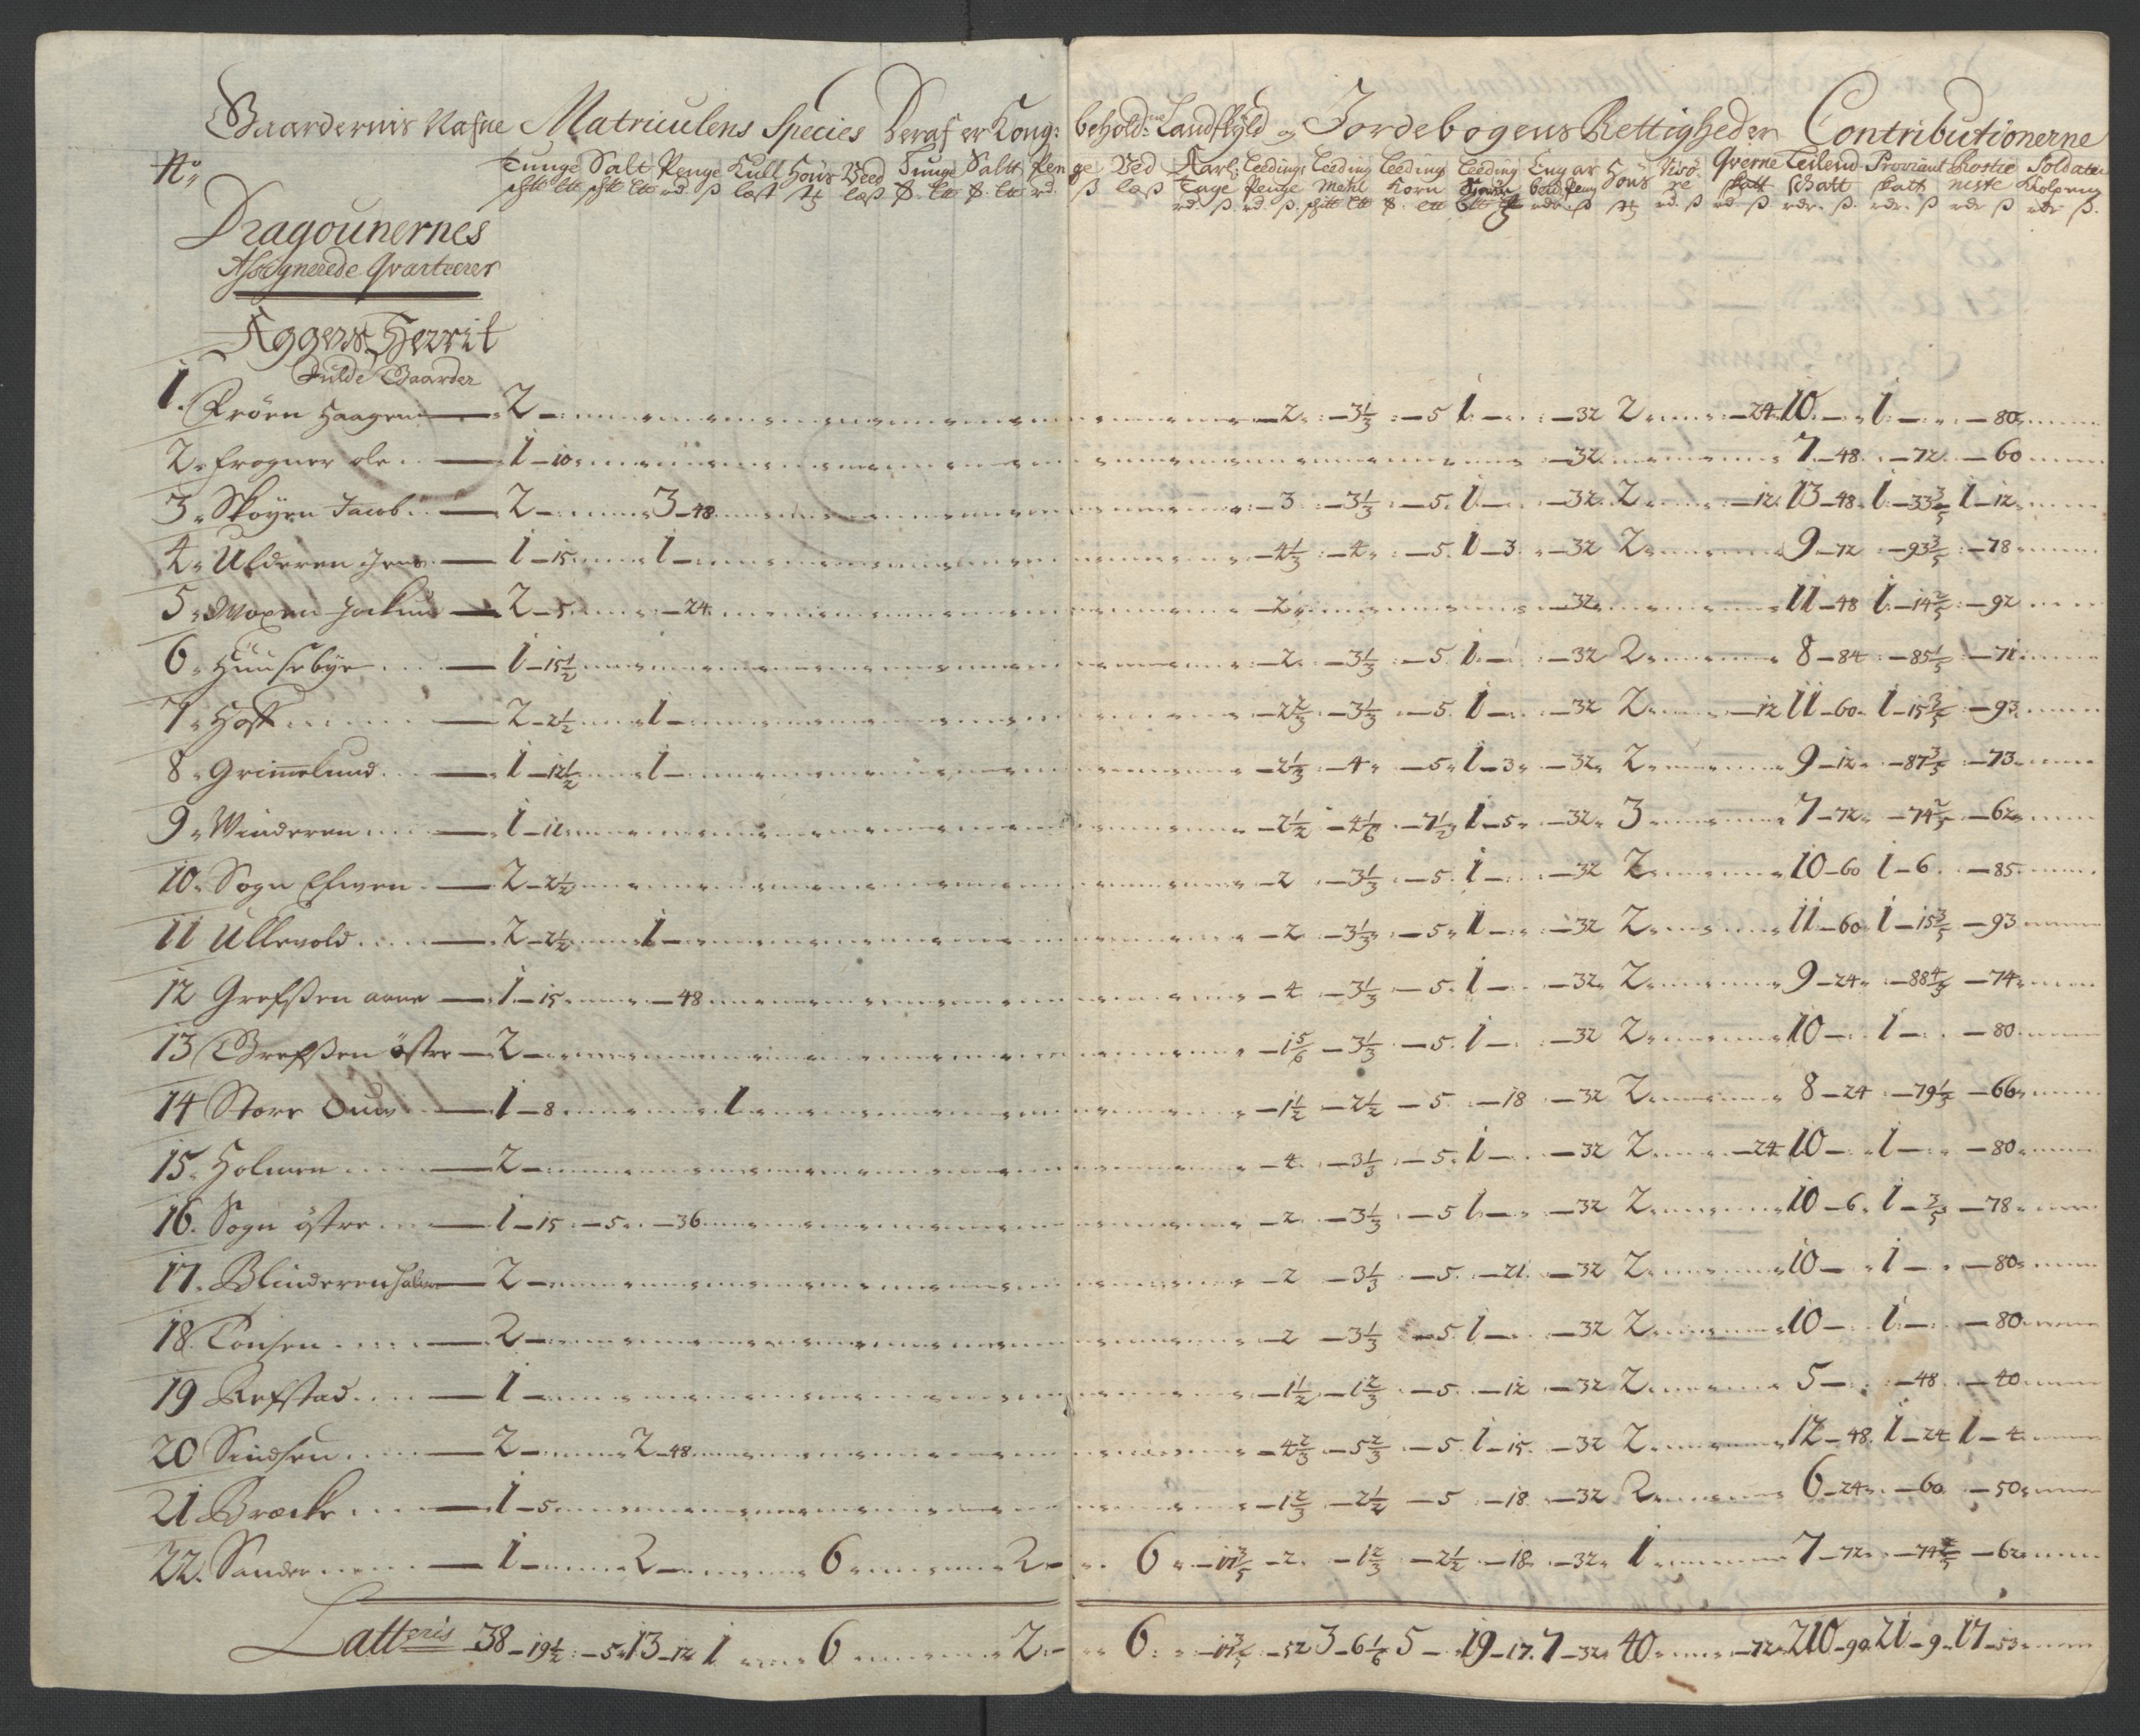 Gaardernis Nafne Matriculens Species Deraf er Kong: behold:ne Landskyld og Jordebogens Rettigheder Contributionerne
No Tunge Salt Penge Kull Høns Veed Tunge Saltt Penge Ved Aarl: Leedings Leeding Leeding Leeding Engar Høns Visø- Qverne Leilend Proviant Rostie Soldater
Tage Penge Mehl Korn bold Peng re skatt Schatt skatt neste Kolpeng
Dragounernes
Assignerede Qvarteerer
Aggers Herrit
Fulde Gaarder
1. Frøen Haagen — 2 — — 2 — 3 1/3 — 5 1 — — 32 2 — 24 10 — 1 — — 80
2. Frogner ole — 1 — 10 — 32 7 — 48 — 72 — 60
3. Skøyen Jacob — 2 — 3 — 48 — 3 — 3 1/3 — 5 1 — — 32 2 — 12 13 — 48 1 — 33 3/5 1 — 12
4. Ulderen Jens — 1 — 15 1 — — 4 1/3 — 4 — 5 1 — 3 — 32 2 9 — 72 — 93 3/5 — 78
5. Woxen Jockum — 2 — 5 — 24 — 2 — 32 11 — 48 1 — 14 2/5 — 92
6. Huusebye — 1 — 15 1/2 — 2 — 3 1/3 — 5 1 — — 32 2 8 — 84 — 85 1/5 — 71
7. Hoff — 2 — 2 1/2 1 — — 2 2/3 — 3 1/3 — 5 1 — — 32 2 — 12 11 — 60 1 — 15 3/5 — 93
8. Grimelund — 1 — 12 1/2 1 — — 2 1/3 — 4 — 5 1 — 3 — 32 2 9 — 12 — 87 3/5 — 73
9. Winderen — 1 — 11 — 2 1/2 — 4 1/6 — 7 1/2 1 — 5 — 32 3 7 — 72 — 74 2/5 — 62
10. Sogn Elwen — 2 — 2 1/2 — 2 — 3 1/3 — 5 1 — — 32 2 10 — 60 1 — 6 — 85
11 Ullevold — 2 — 2 1/2 1 — — 2 — 3 1/3 — 5 1 — — 32 2 11 — 60 1 — 15 3/5 — 93
12 Grefsen arne — 1 — 15 — 48 — 4 — 3 1/3 — 5 1 — — 32 2 9 — 24 — 88 4/5 — 74
13 Grefsen østre — 2 — — 1 5/6 — 3 1/3 — 5 1 — — 32 2 10 — 1 — — 80
14 Store Ouw — 1 — 8 1 — 1 1/2 — 2 1/2 — 5 — 18 — 32 2 8 — 24 — 79 1/5 — 66
15. Holmen — 2 — — 4 — 3 1/3 — 5 1 — — 32 2 — 24 10 — 1 — — 80
16. Sogn østre — 1 — 15 — 5 — 36 — 2 — 3 1/3 — 5 1 — — 32 2 10 — 6 1 — 3/5 — 78
17. Blinderen — 2 — — 2 — 3 1/3 — 5 — 21 — 32 2 10 — 1 — — 80
18. Tonsen — 2 — — 2 — 3 1/3 — 5 1 — — 32 2 10 — 1 — — 80
19 Refstad — 1 — — 1 1/2 — 1 2/3 — 5 — 12 — 32 2 5 — — 48 — 40
20 Sindsen — 2 — 2 — 48 — 4 2/3 — 5 2/3 — 5 1 — 15 — 32 2 12 — 48 1 — 24 1 — 4
21 Bracke — 1 — 5 — 1 2/3 — 2 1/2 — 5 — 18 — 32 2 6 — 24 — 60 — 50
22. Sander — 1 — 2 — 6 2 — 6 — 17 3/5 — 2 — 1 2/3 — 2 1/2 — 18 — 32 1 7 — 72 — 74 2/5 — 62
Latteris 38 — 19 1/2 — 5 13 — 12 1 6 2 — 6 — 17 3/5 — 52 3 — 6 1/6 5 — 19 — 17 7 — 32 40 — 72 210 — 90 21 — 9 17 — 53